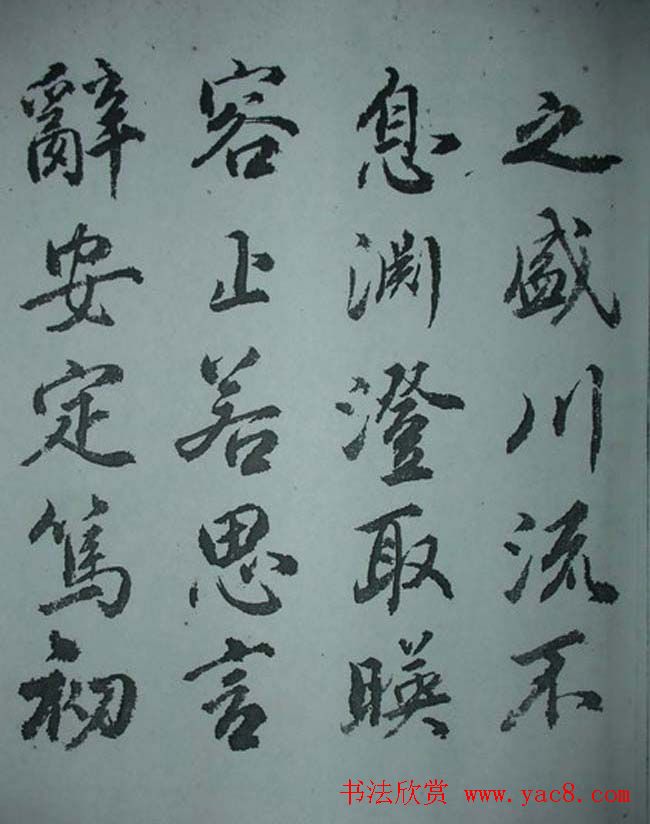 之盛川流不
息渊澄取暎
容止若思言
辭安定篤初
书法欣赏 www.yac8.com